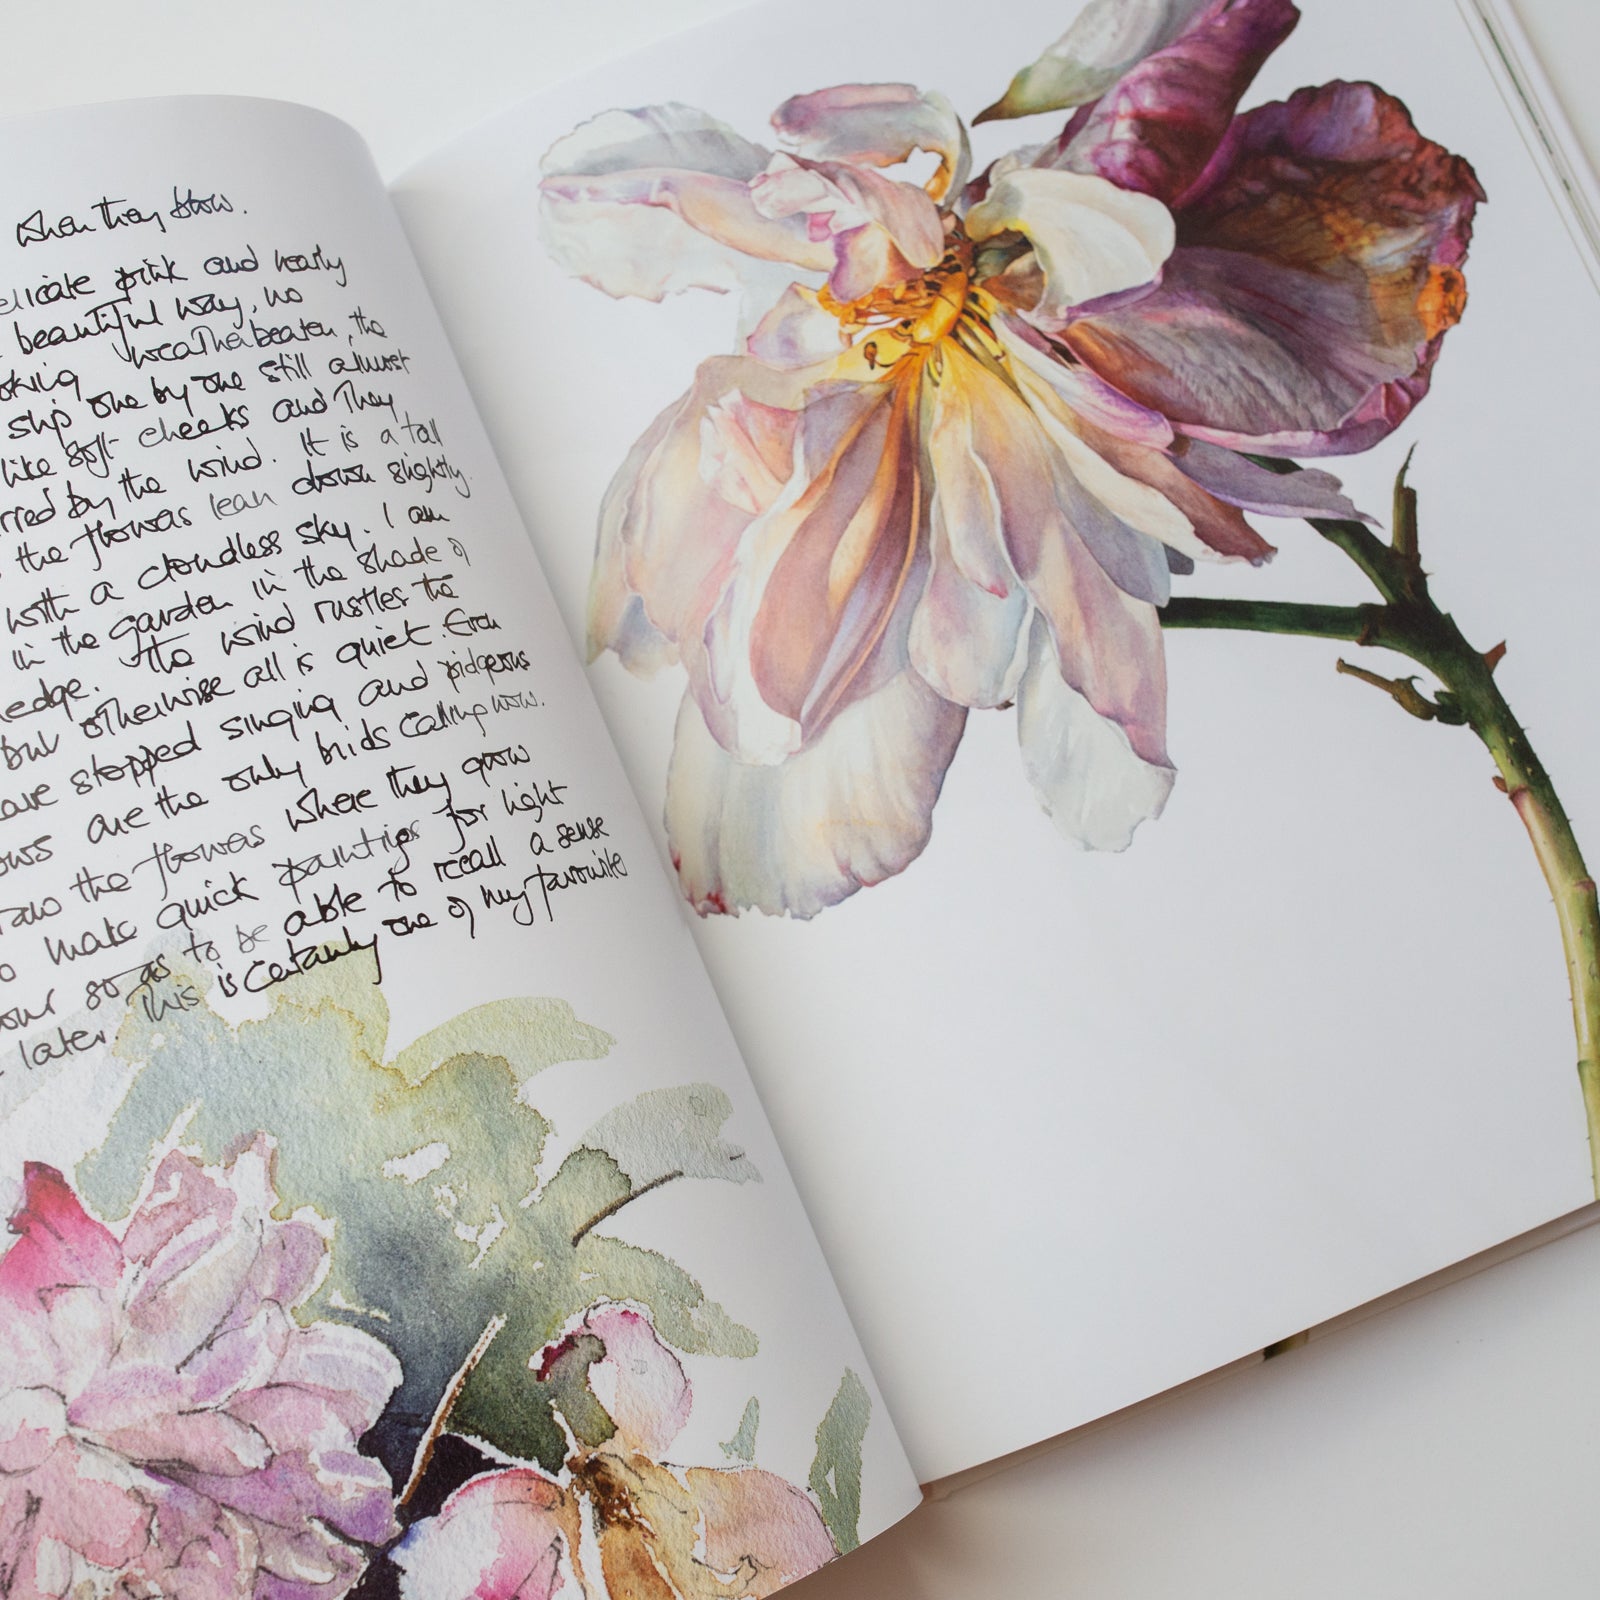 when they blow.
elicate pink and nearly
beautiful way, no
oking weatherbeaten, the
slip one by one still almost
like soft cheeks and they
rried by the wind. It is a tall
the flowers lean down slightly.
with a cloudless sky. I am
in the garden in the shade of
edge. The wind rustles the
but otherwise all is quiet. Even
ave stopped singing and pidgeons
ows are the only birds calling now.
raw the flowers where they grow
o make quick paintings for light
our so as to be able to recall a sense
later. This is certainly one of my favourite